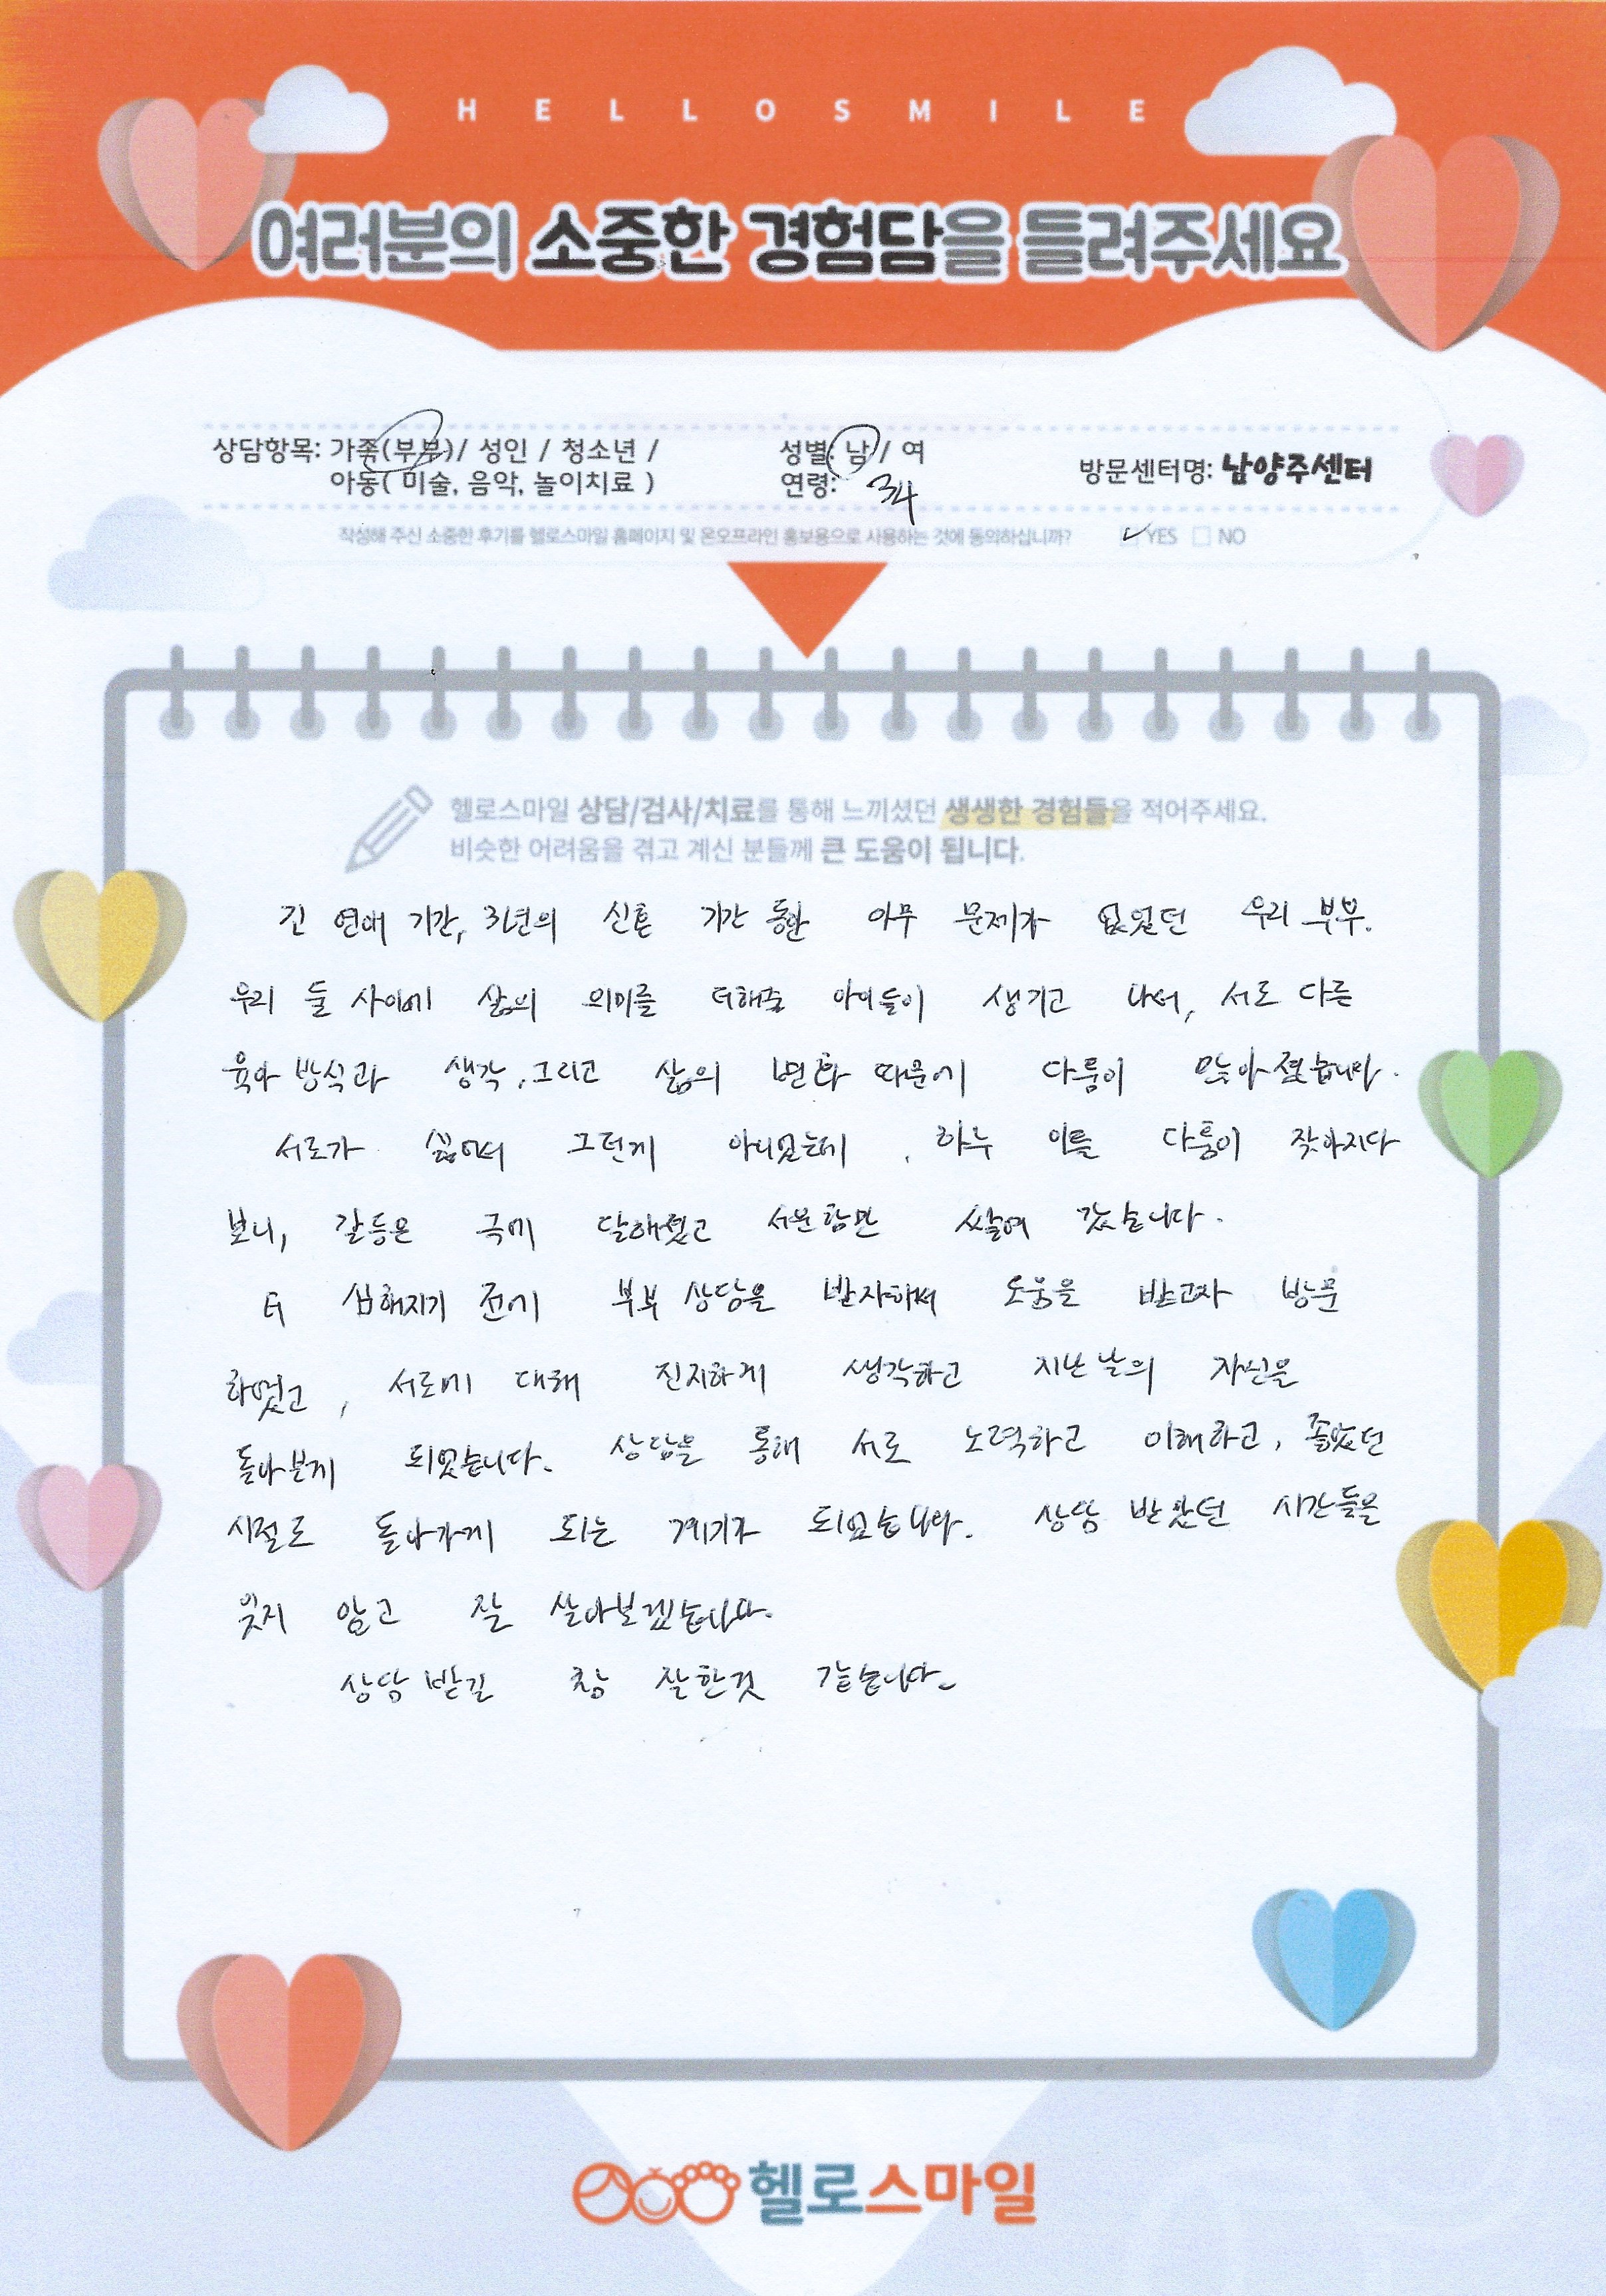 HELLOSMILE
여러분의 소중한 경험담을 들려주세요
상담항목: 가족(부부)/ 성인 / 청소년 /
아동( 미술, 음악, 놀이치료 )
성별: 남 / 여
연령: 34
방문센터명: 남양주센터
작성해 주신 소중한 후기를 헬로스마일 홈페이지 및 온오프라인 홍보용으로 사용하는 것에 동의하십니까? YES NO
헬로스마일 상담/검사/치료를 통해 느끼셨던 생생한 경험들을 적어주세요.
비슷한 어려움을 겪고 계신 분들께 큰 도움이 됩니다.
긴 연애 기간, 3년의 신혼 기간 동안 아무 문제가 없었던 우리 부부.
우리 둘 사이에 삶의 의미를 더해줄 아이들이 생기고 나서, 서로 다른
육아 방식과 생각, 그리고 삶의 변화 때문에 다툼이 많아졌습니다.
서로가 싫어서 그런게 아니었는데, 하루 이틀 다툼이 잦아지다
보니, 갈등은 극에 달해졌고 서운함만 쌓여 갔습니다.
더 심해지기 전에 부부 상담을 받자하여 도움을 받고자 방문
하였고, 서로에 대해 진지하게 생각하고 지난날의 자신을
돌아보게 되었습니다. 상담을 통해 서로 노력하고 이해하고, 좋았던
시절로 돌아가게 되는 계기가 되었습니다. 상담 받았던 시간들을
잊지 않고 잘 살아보겠습니다.
상담 받길 참 잘한것 같습니다.
헬로스마일